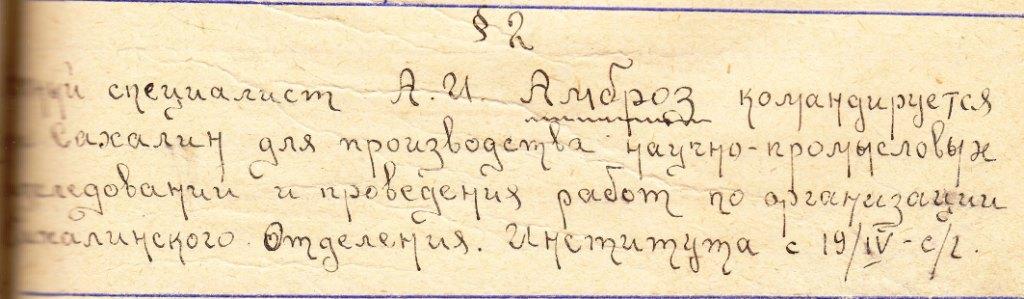 § 2
специалист А.И. Амброз командируется
Сахалин для производства научно-промысловых
следований и проведения работ по организации
халинского Отделения. Института с 19/IV-с/г.